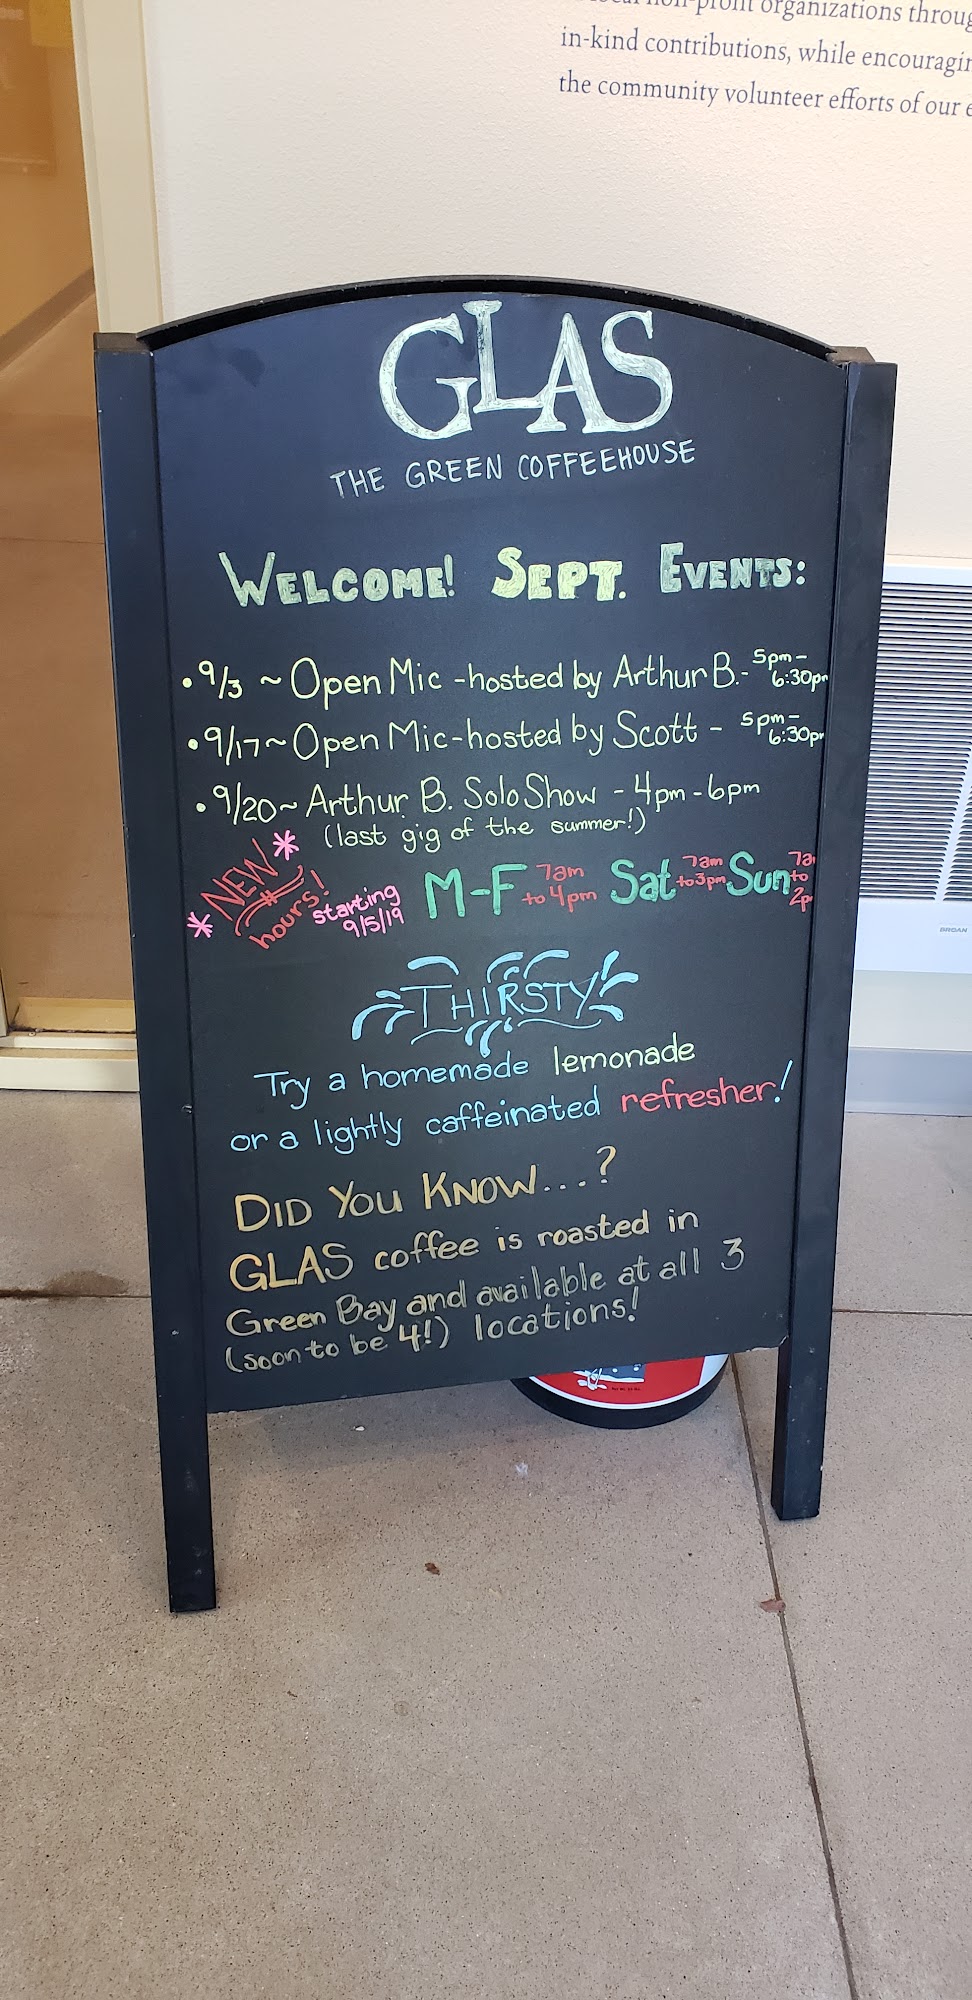 non-profit organizations
in-kind contributions, while
the community volunteer efforts of our
GLAS
THE GREEN COFFEEHOUSE
WELCOME! SEPT. EVENTS:
• 9/3 ~ Open Mic - hosted by Arthur B. - 5pm - 6:30pm
• 9/17 ~ Open Mic - hosted by Scott - 5pm - 6:30pm
• 9/20 ~ Arthur B. Solo Show - 4pm - 6pm
(last gig of the summer!)
* NEW * hours! starting 9/5/19
M-F 7am to 4pm Sat 7am to 3pm Sun 7a to 2p
THIRSTY
Try a homemade lemonade
or a lightly caffeinated refresher!
DID YOU KNOW...?
GLAS coffee is roasted in
Green Bay and available at all 3
(soon to be 4!) locations!
BROAN